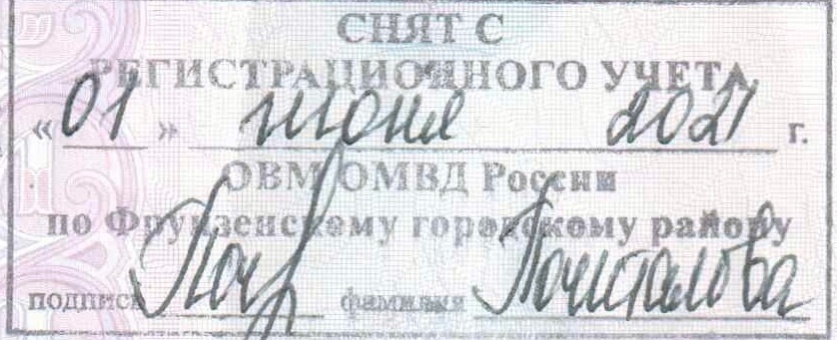 СНЯТ С
РЕГИСТРАЦИОННОГО УЧЕТА
«01» июня 2021 г.
ОВМ ОМВД России
по Фрунзенскому городскому району
подпись фамилия